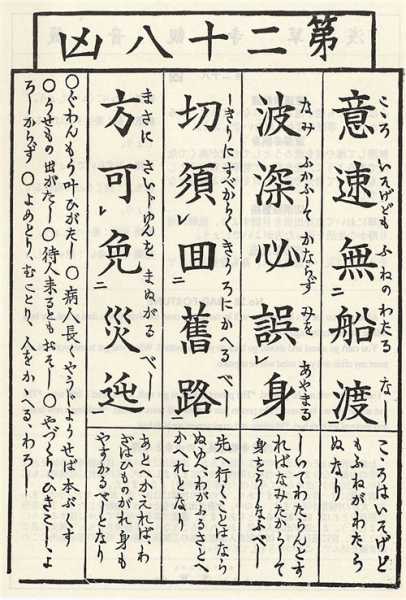 第二十八凶
意速無二船渡一
こころ いそげども ふねのわたる なし
こゝろはいそげど
もふねがわたら
ぬなり
波深必誤レ身
なみ ふかふして かならず みを あやまる
しいてわたらんとす
ればなみたかうして
身をうしなふべし
切須レ囬二舊路一
しきりにすべからく きうろにかへるべし
先へ行くことはなら
ぬゆへ、わがふるさとへ
かへれとなり
方可レ免二災迍一
まさに さいじゆんを まぬがる べし
あとへかえれば、わ
ざはひものがれ身も
やすかるべしとなり
○ぐわんもう叶ひがたし○病人長くやうじようせば本ぷくす
○うせもの出がたし○待人来るともおそし○やづくり、ひきこし、よ
ろしからず○よめとり、むことり、人をかゝへる、わろし